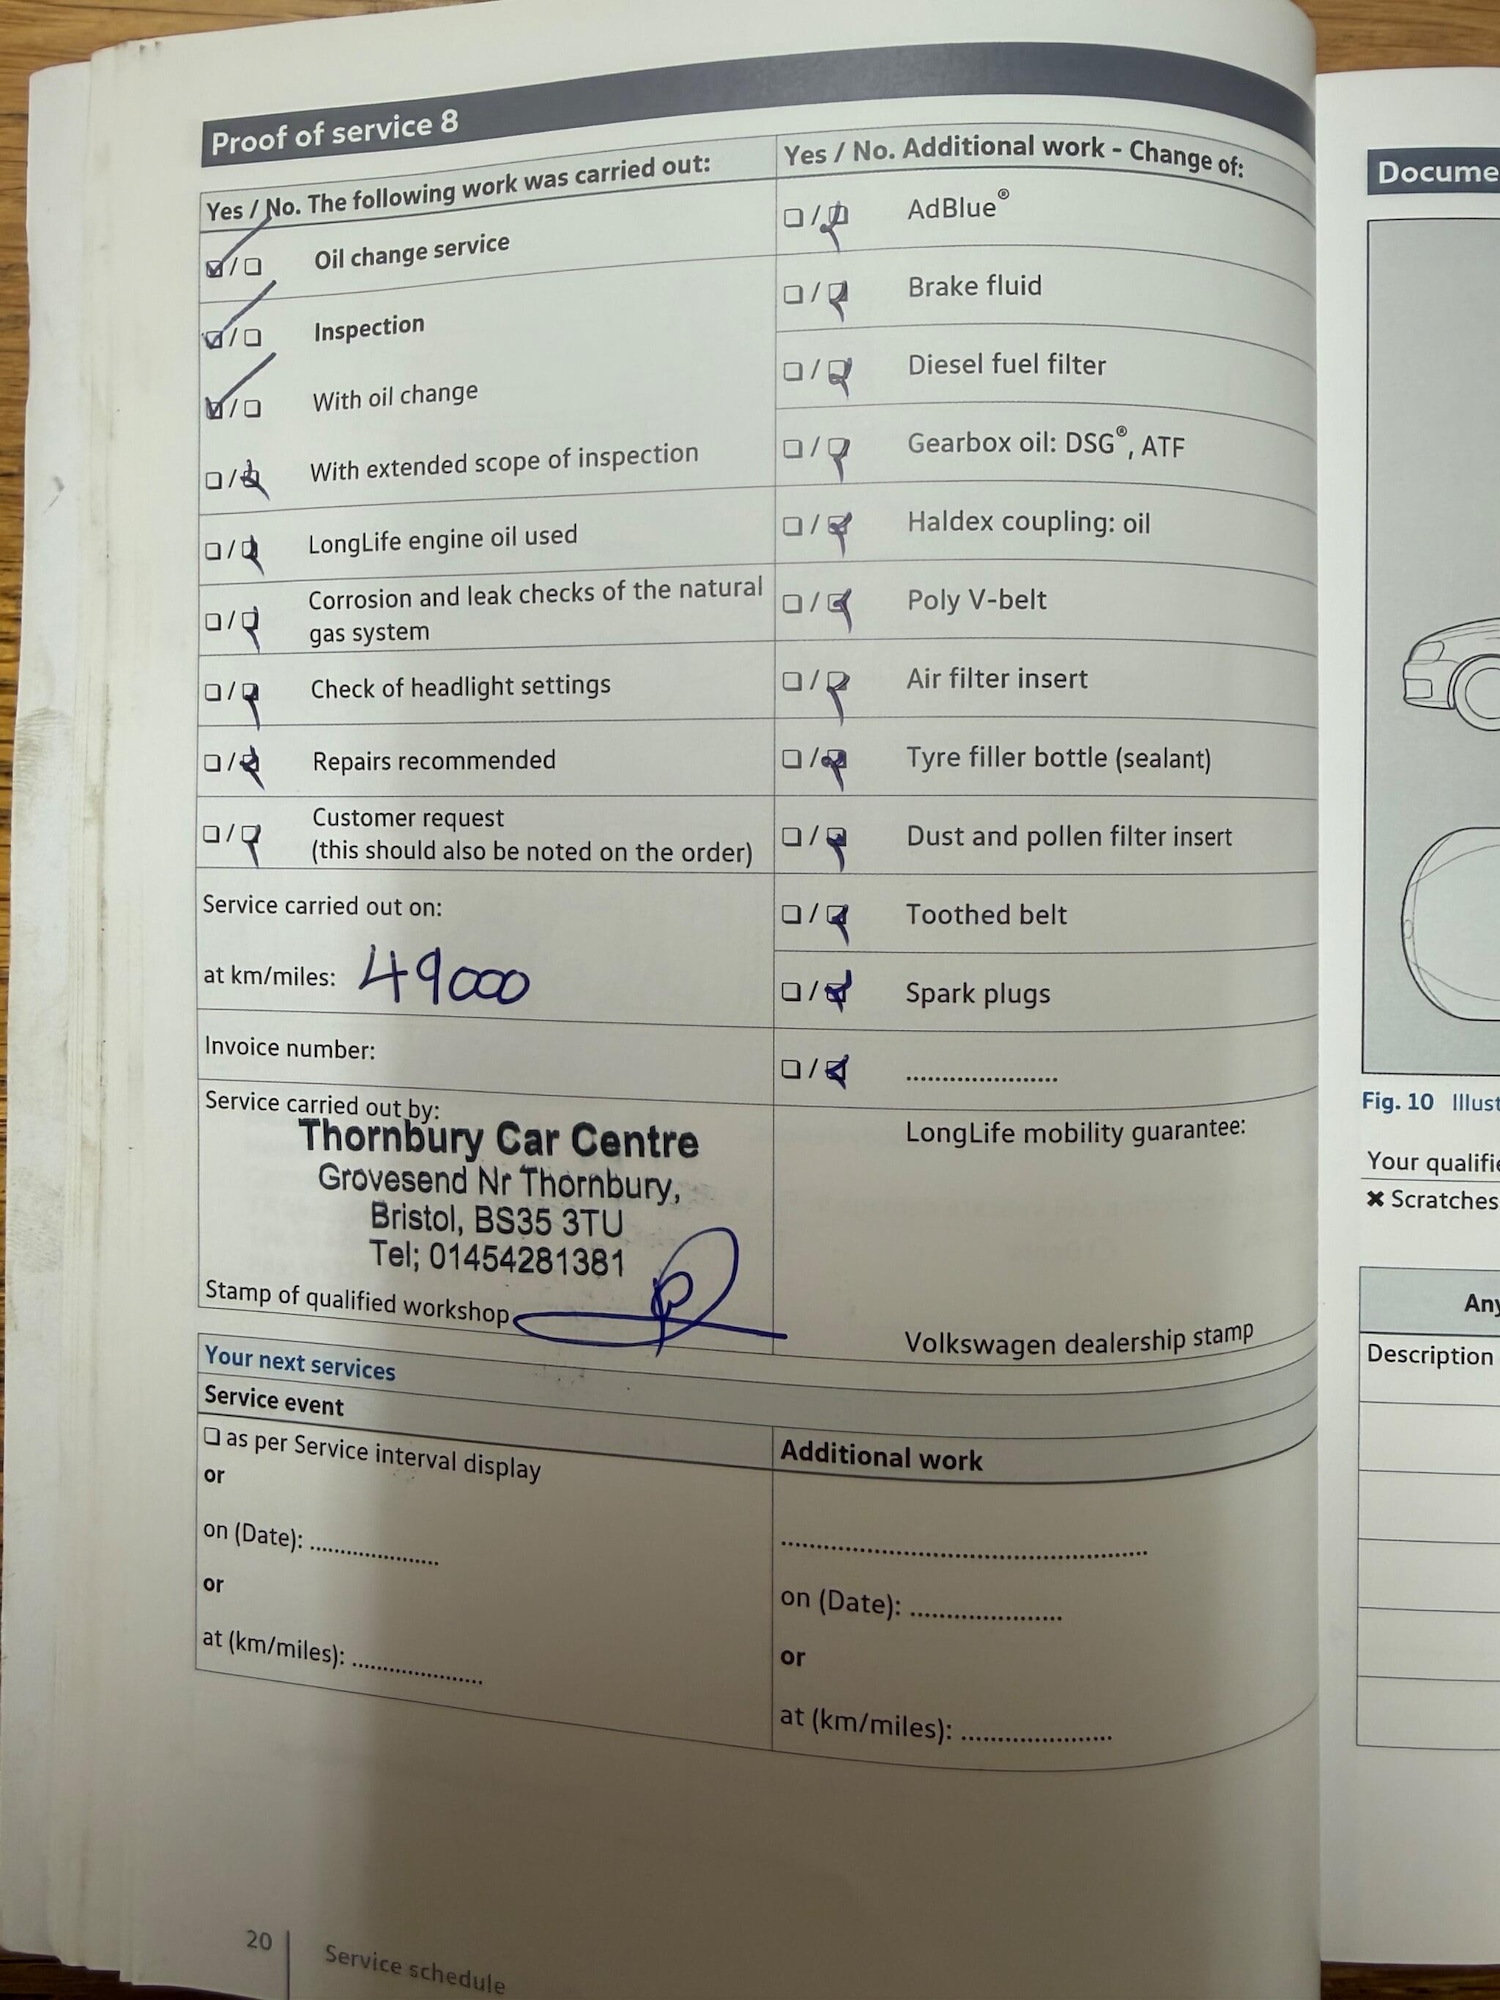 Proof of service 8
Yes / No. The following work was carried out:
☑/☐ Oil change service
☑/☐ Inspection
☑/☐ With oil change
☐/☑ With extended scope of inspection
☐/☑ LongLife engine oil used
☐/☑ Corrosion and leak checks of the natural
gas system
☐/☑ Check of headlight settings
☐/☑ Repairs recommended
☐/☑ Customer request
(this should also be noted on the order)
Service carried out on:
at km/miles: 49000
Invoice number:
Service carried out by:
Thornbury Car Centre
Grovesend Nr Thornbury,
Bristol, BS35 3TU
Tel; 01454281381
Stamp of qualified workshop
Yes / No. Additional work - Change of:
☐/☑ AdBlue®
☐/☑ Brake fluid
☐/☑ Diesel fuel filter
☐/☑ Gearbox oil: DSG®, ATF
☐/☑ Haldex coupling: oil
☐/☑ Poly V-belt
☐/☑ Air filter insert
☐/☑ Tyre filler bottle (sealant)
☐/☑ Dust and pollen filter insert
☐/☑ Toothed belt
☐/☑ Spark plugs
☐/☑ ......................
LongLife mobility guarantee:
Volkswagen dealership stamp
Your next services
Service event
☐ as per Service interval display
or
on (Date): ...................
or
at (km/miles): ...................
Additional work
......................................................
on (Date): ......................
or
at (km/miles): ......................
20
Service schedule
Docume
Fig. 10 Illust
Your qualifie
✖ Scratches
Any
Description